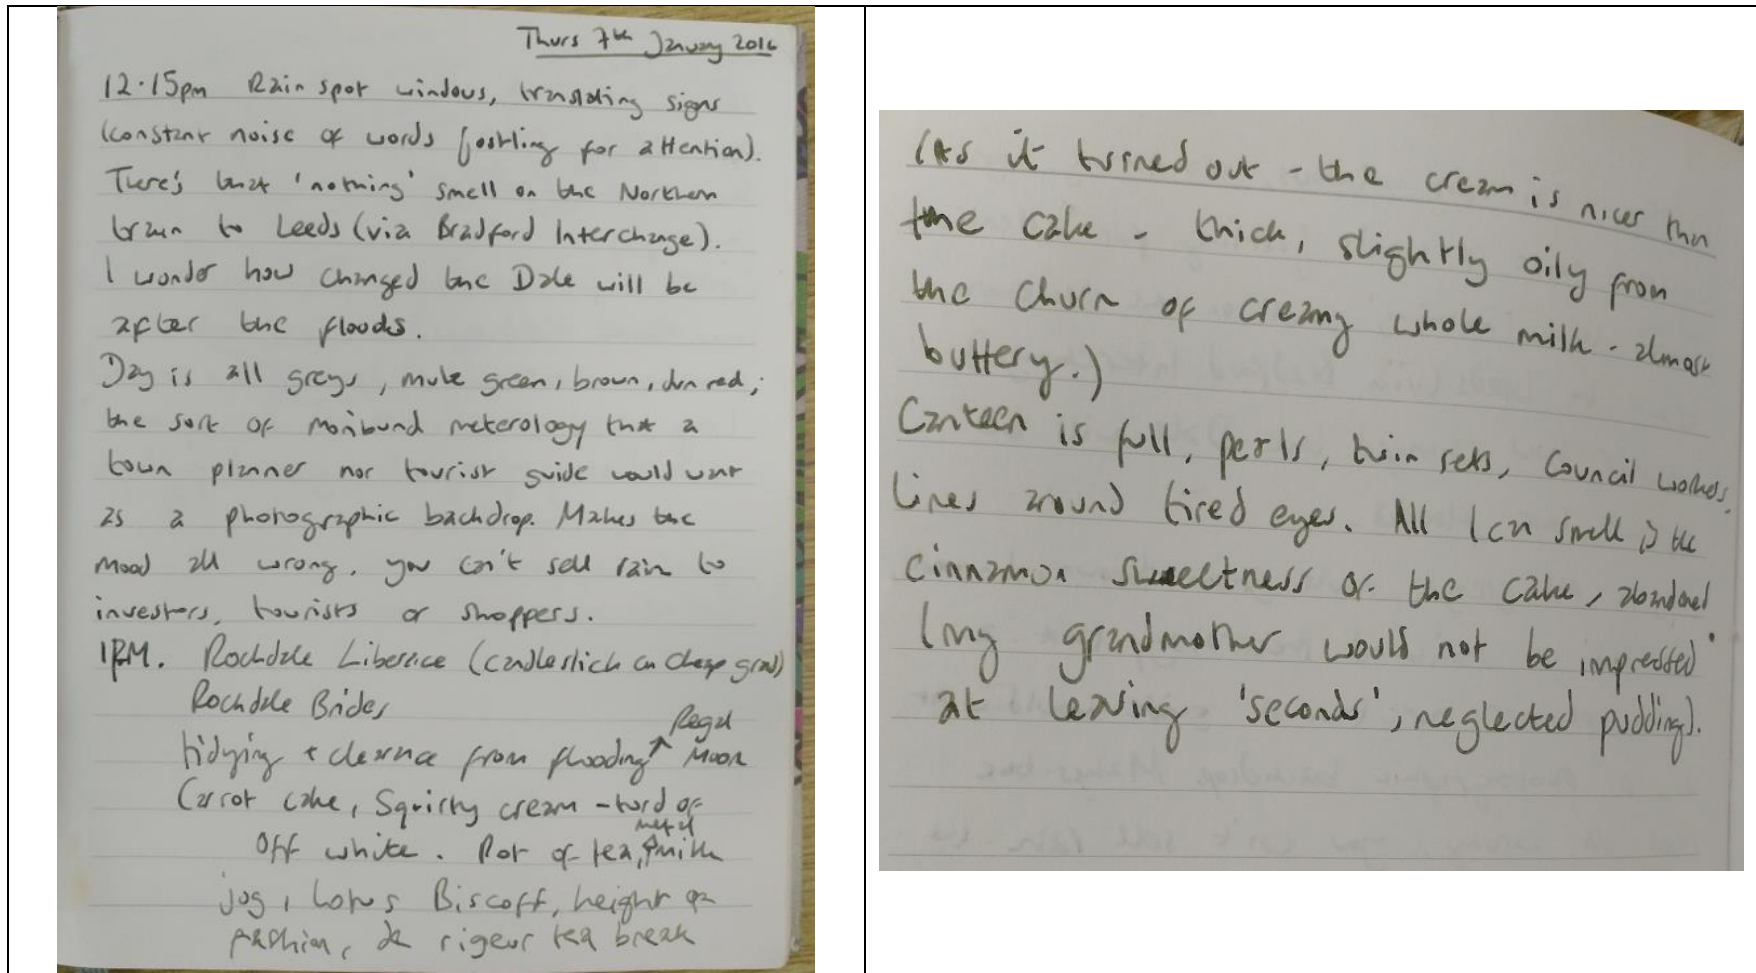 Thurs 7th January 2016
12.15pm Rain spot windows, translating signs
(constant noise of words jostling for attention).
There's that 'nothing' smell on the Northern
train to Leeds (via Bradford Interchange).
I wonder how changed the Dale will be
after the floods.
Day is all greys, mute green, brown, dun red;
the sort of moribund meterology that a
town planner nor tourist guide would want
as a photographic backdrop. Makes the
mood all wrong, you can't sell rain to
investors, tourists or shoppers.
1PM. Rochdale Liberace (candlestick on cheap grand)
Rochdale Brides
Regal
tidying + clearance from flooding ↑ Moon
Carrot cake, Squirty cream - turd of
metal
off white. Pot of tea, milk
jug, Lotus Biscoff, height of
fashion, de rigeur tea break
(As it turned out - the cream is nicer than
the cake - thick, slightly oily from
the churn of creamy whole milk - almost
buttery.)
Canteen is full, perls, twin sets, Council workers,
lines around tired eyes. All I can smell is the
cinnamon sweetness of the cake, abandoned
(my grandmother would not be impressed
at leaving 'seconds', neglected pudding).